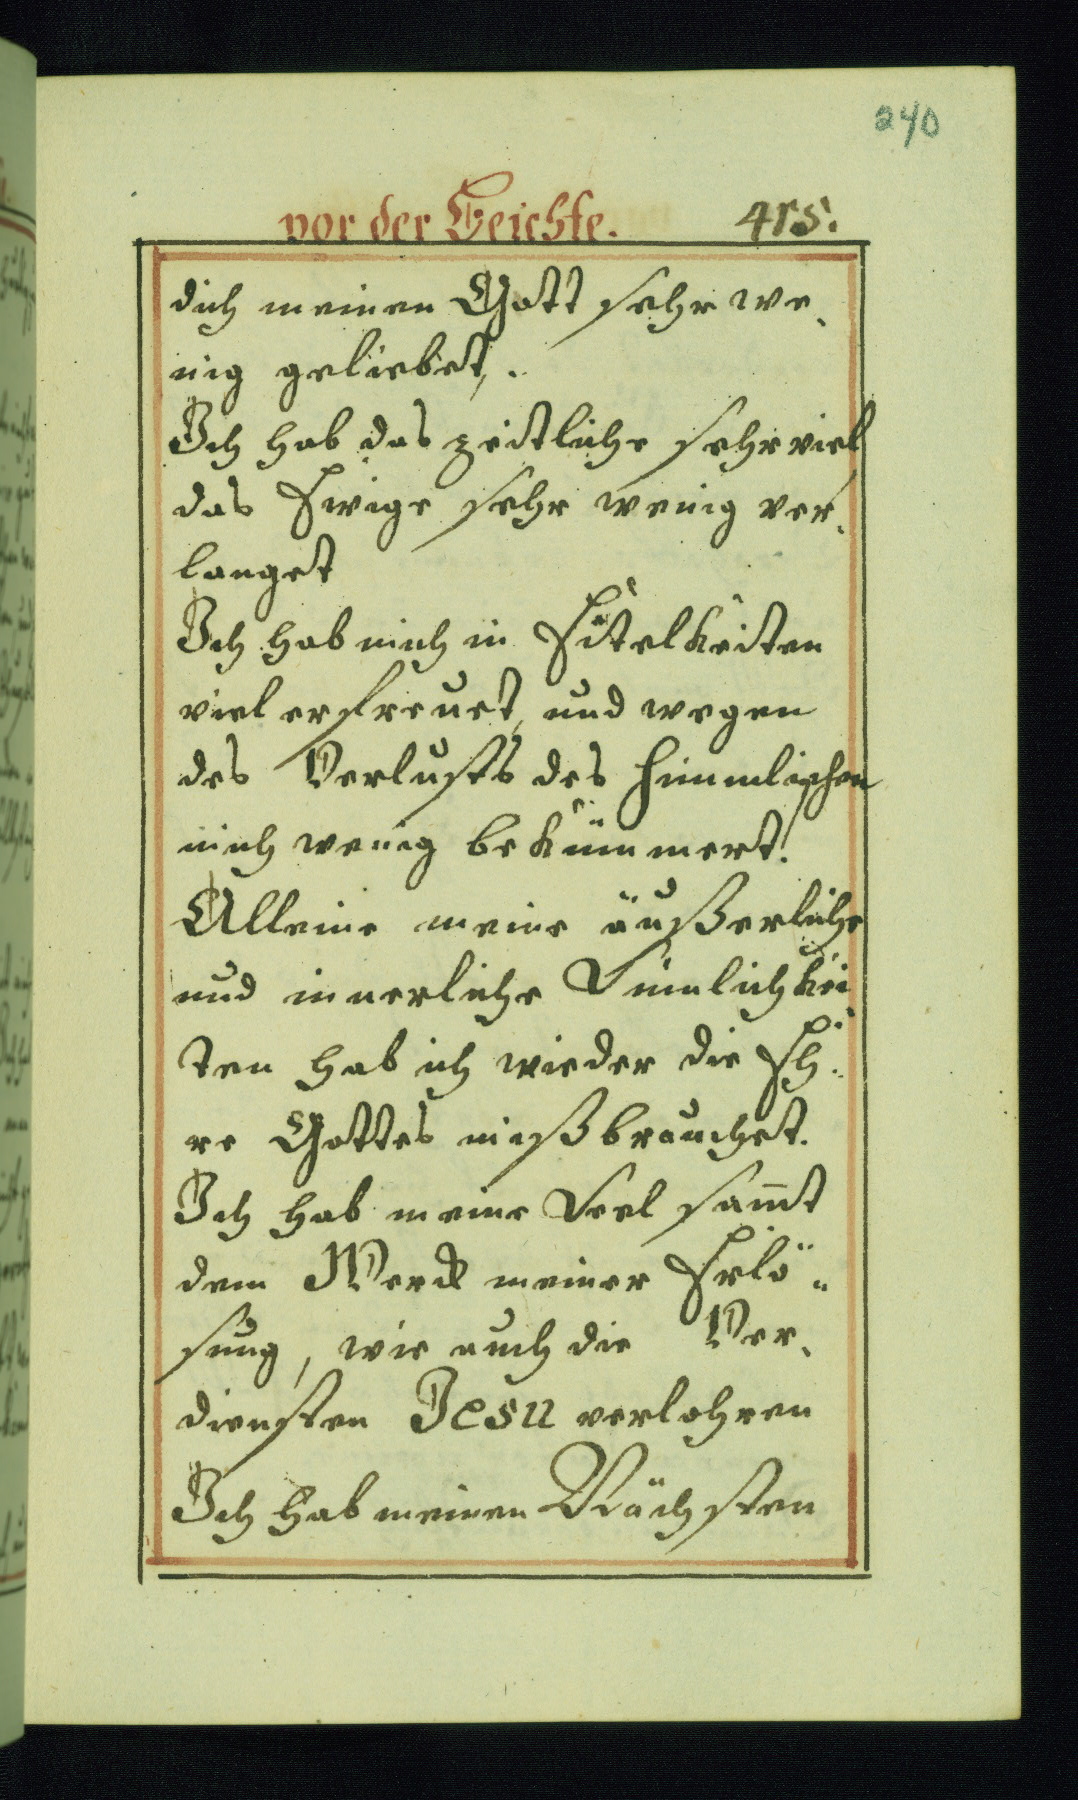 240
vor der Beichte. 415.
dich meinen Gott sehr we„
nig geliebet.
Ich hab das zeitliche sehr viel
das Ewige sehr wenig ver„
langet
Ich hab mich in Eitelkeiten
viel erfreuet, und wegen
des Verlusts des himmlischen
mich wenig bekümmert.
Alleine meine äußerliche
und innerliche Sinnlichkei
ten hab ich wieder die Eh„
re Gottes mißbrauchet.
Ich hab meine Seel sam̃t
dem Werck meiner Erlö„
sung, wie auch die Ver„
diensten Jesu verlohren
Ich hab meinen Nächsten